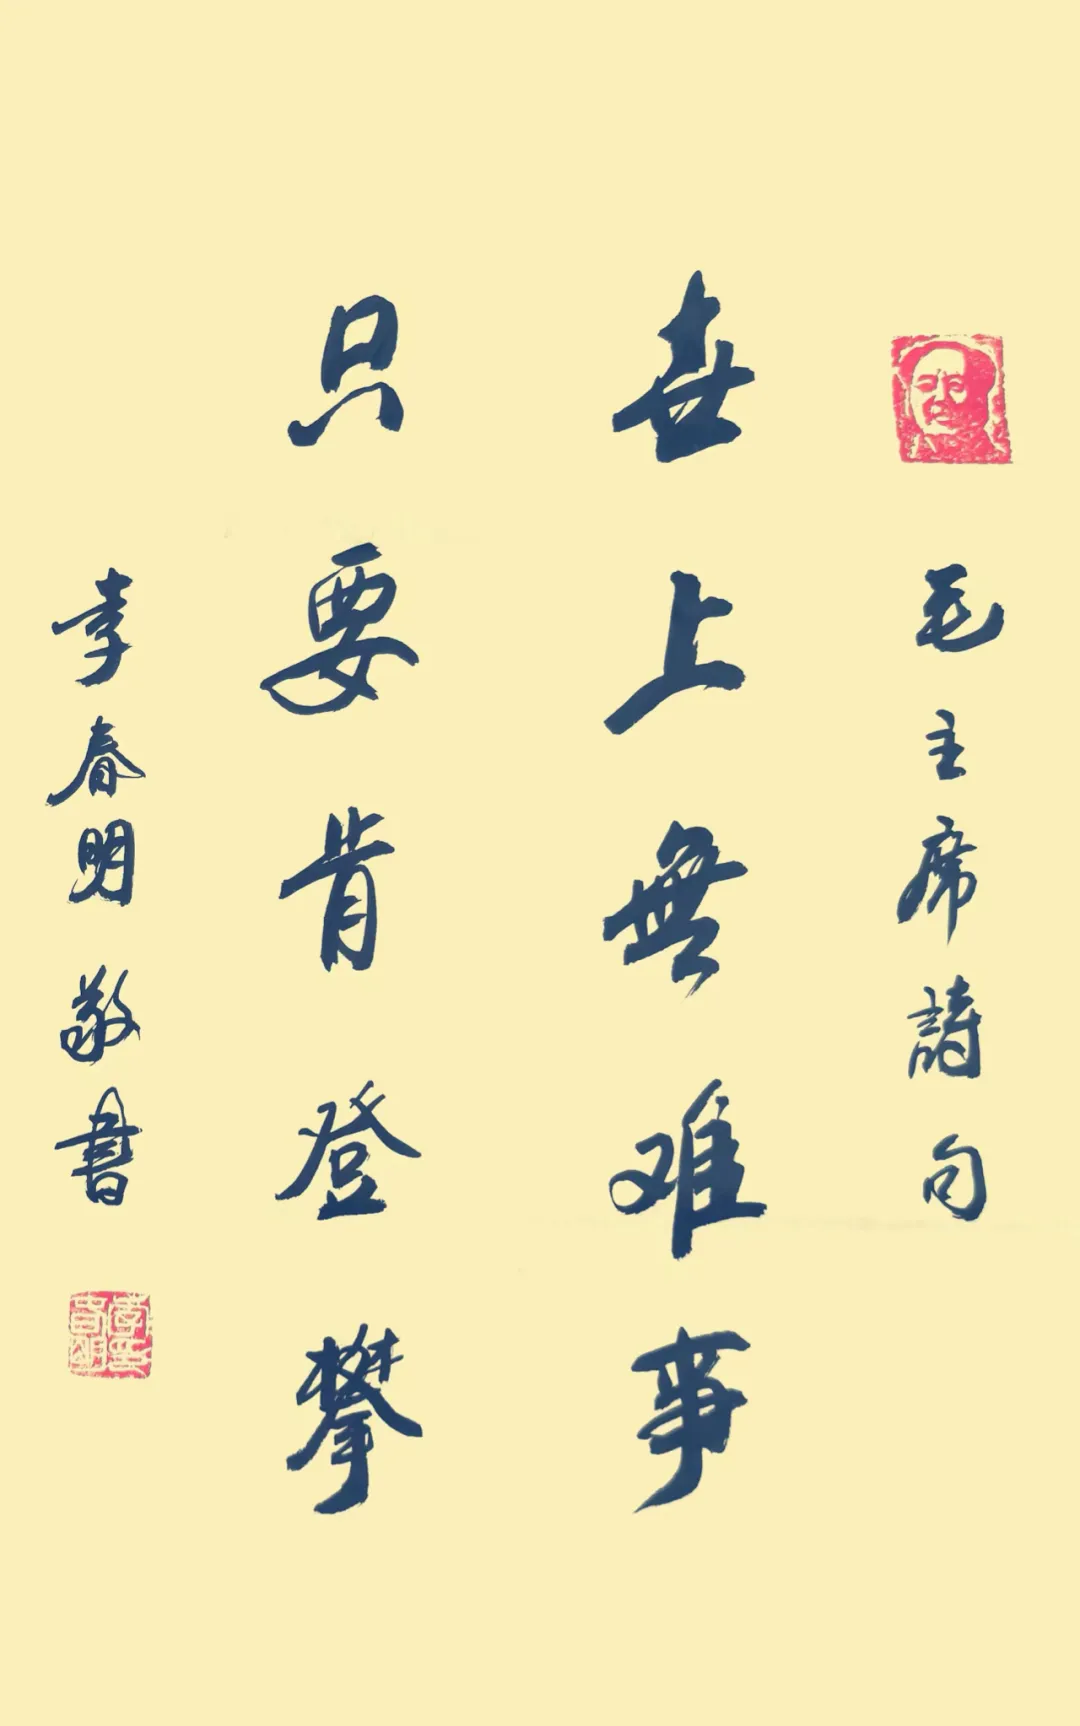 毛主席詩句
世上無难事
只要肯登攀
李春明敬書